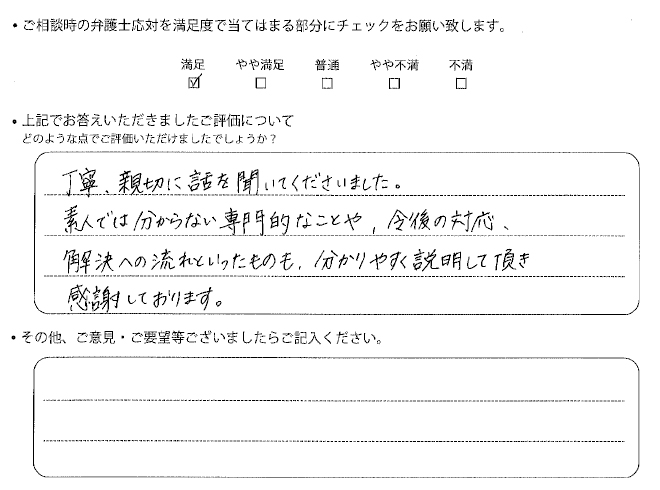 • ご相談時の弁護士応対を満足度で当てはまる部分にチェックをお願い致します。
満足 やや満足 普通 やや不満 不満
☑ □ □ □ □
• 上記でお答えいただきましたご評価について
どのような点でご評価いただけましたでしょうか？
丁寧、親切に話を聞いてくださいました。
素人では分からない専門的なことや、今後の対応、
解決への流れといったものも、分かりやすく説明して頂き
感謝しております。
• その他、ご意見・ご要望等ございましたらご記入ください。